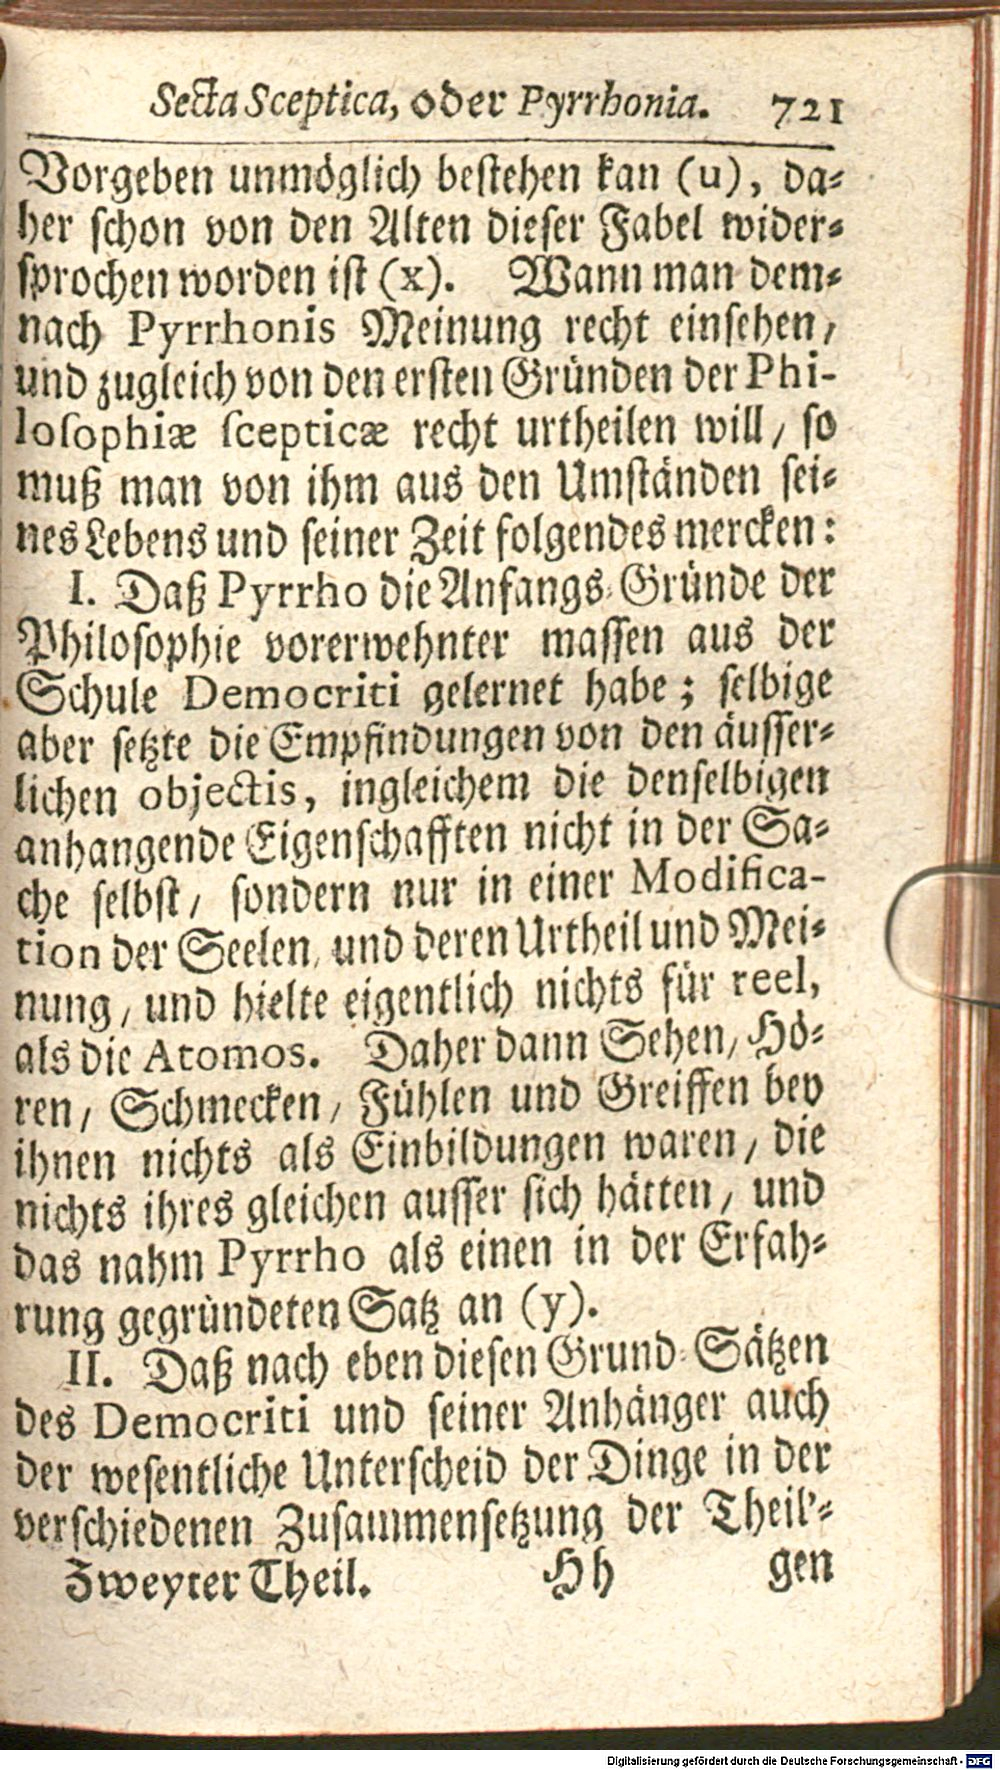 Secta Sceptica, oder Pyrrhonia. 721
Vorgeben unmöglich bestehen kan (u), da-
her schon von den Alten dieser Fabel wider-
sprochen worden ist (x). Wann man dem-
nach Pyrrhonis Meinung recht einsehen,
und zugleich von den ersten Gründen der Phi-
losophiæ scepticæ recht urtheilen will, so
muß man von ihm aus den Umständen sei-
nes Lebens und seiner Zeit folgendes mercken:
I. Daß Pyrrho die Anfangs-Gründe der
Philosophie vorerwehnter massen aus der
Schule Democriti gelernet habe; selbige
aber setzte die Empfindungen von den äusser-
lichen objectis, ingleichem die denselbigen
anhangende Eigenschafften nicht in der Sa-
che selbst, sondern nur in einer Modifica-
tion der Seelen, und deren Urtheil und Mei-
nung, und hielte eigentlich nichts für reel,
als die Atomos. Daher dann Sehen, Hö-
ren, Schmecken, Fühlen und Greiffen bey
ihnen nichts als Einbildungen waren, die
nichts ihres gleichen ausser sich hätten, und
das nahm Pyrrho als einen in der Erfah-
rung gegründeten Satz an (y).
II. Daß nach eben diesen Grund-Sätzen
des Democriti und seiner Anhänger auch
der wesentliche Unterscheid der Dinge in der
verschiedenen Zusammensetzung der Theil-
Zweyter Theil. Hh gen
Digitalisierung gefördert durch die Deutsche Forschungsgemeinschaft - DFG